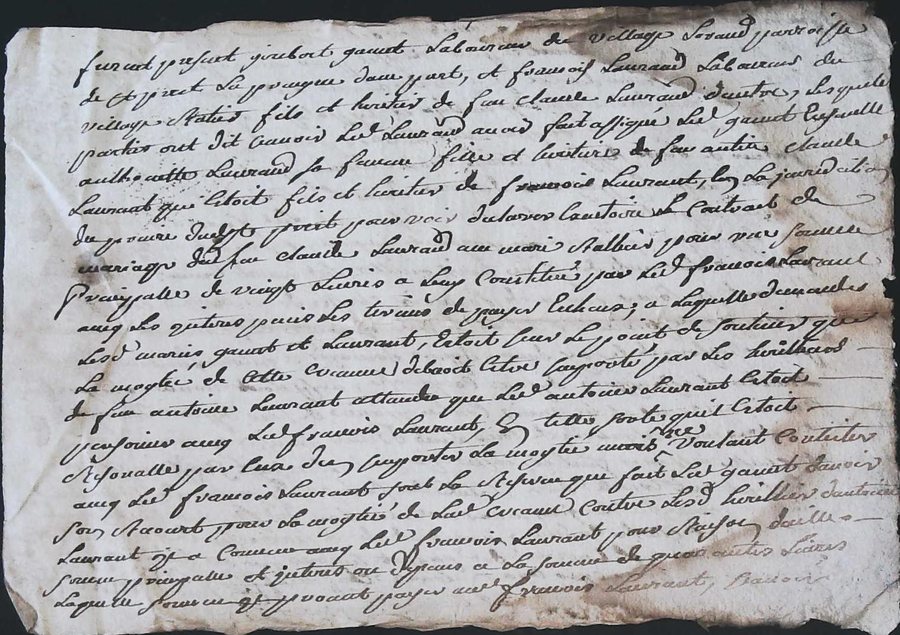 furent present joubert gannit Laboureur du village Lorand parroisse
de st priet La prougne dune part, et francois Laurand Laboureur du
village fils et heritier de feu Claude Laurand dautre, Lesquelle
parties ont dit scavoir Led Laurand avoir fait assigne Led gannit
Laurand sa famme fille et heritiere de feu autre Claude
Laurant qui Estoit fils et heritier de francois Laurant, En La juridition
du prioire dudt priet pour voir declarer Exectoire Le Contract de
mariage dud feu Claude Laurand au mari pour une somme
Principalle de vingt Livres a Luy Constitué par Led francois Laurant
avec Les interes puis Les termes de payer Echeux; a Laquelle demandes
Lesd mariés gannit et Laurant, Estoit sur Le point de soutenir que
La mogtié de cette creance debvoit Estre suporté par Les heritiers
de feu antoine Laurant attandu que Led antoine Laurant Estoit
personier avec Led francois Laurant, En telle sorte quil Estoit
par eux den suporter La mogtié mais ne voulant Contester
avec Led francois Laurant sous La Reserve que fait Led gannit davoir
son Recourt pour La mogtié de Lad creance Contre Lesd heritier dantoine
Laurant il a Convenu avec Led francois Laurant pour Raison dicelle
somme principalle et interes ou depans a La somme de quarantes Livres
Laquelle somme il promet payer aud francois Laurant, Scavoir